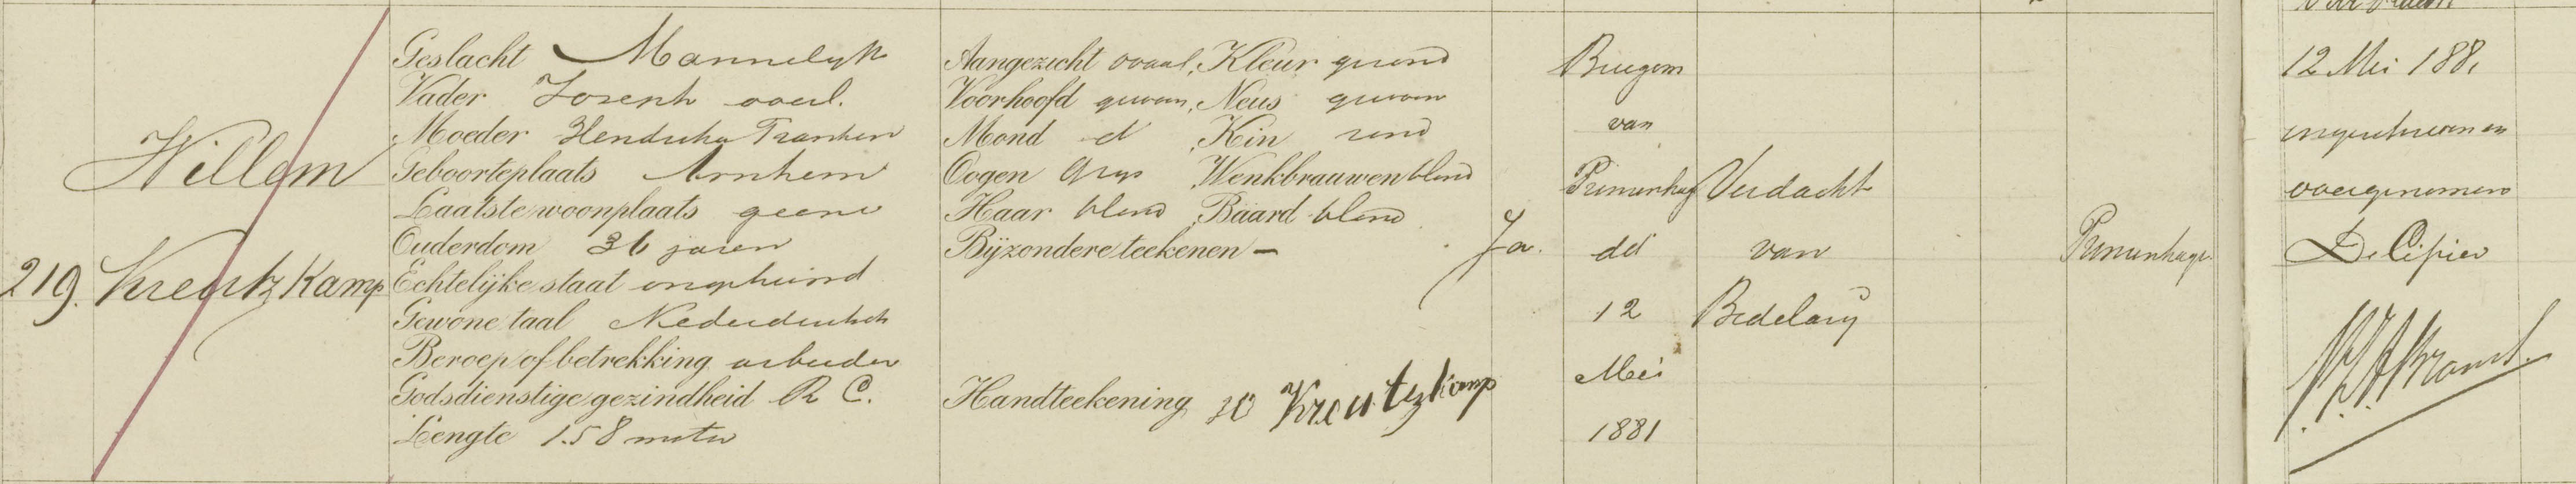 219.
Willem
Kreutzkamp
Geslacht Mannelijk
Vader Joseph overl.
Moeder Hendrika Franken
Geboorteplaats Arnhem
Laatste woonplaats geene
Ouderdom 36 jaren
Echtelijke staat ongehuwd
Gewone taal Nederduitsch
Beroep of betrekking arbeider
Godsdienstige gezindheid R C.
Lengte 1.58 meter
Aangezicht ovaal, Kleur gezond
Voorhoofd gewoon, Neus gewoon
Mond d , Kin rond
Oogen grijs , Wenkbrauwen blond
Haar blond , Baard blond
Bijzondere teekenen -
Handteekening W Kreutzkamp
Ja.
van
dd
12
Mei
1881
Verdacht
van
Bedelarij
12 Mei 1881
ingeschreven en
overgenomen
De Cipier